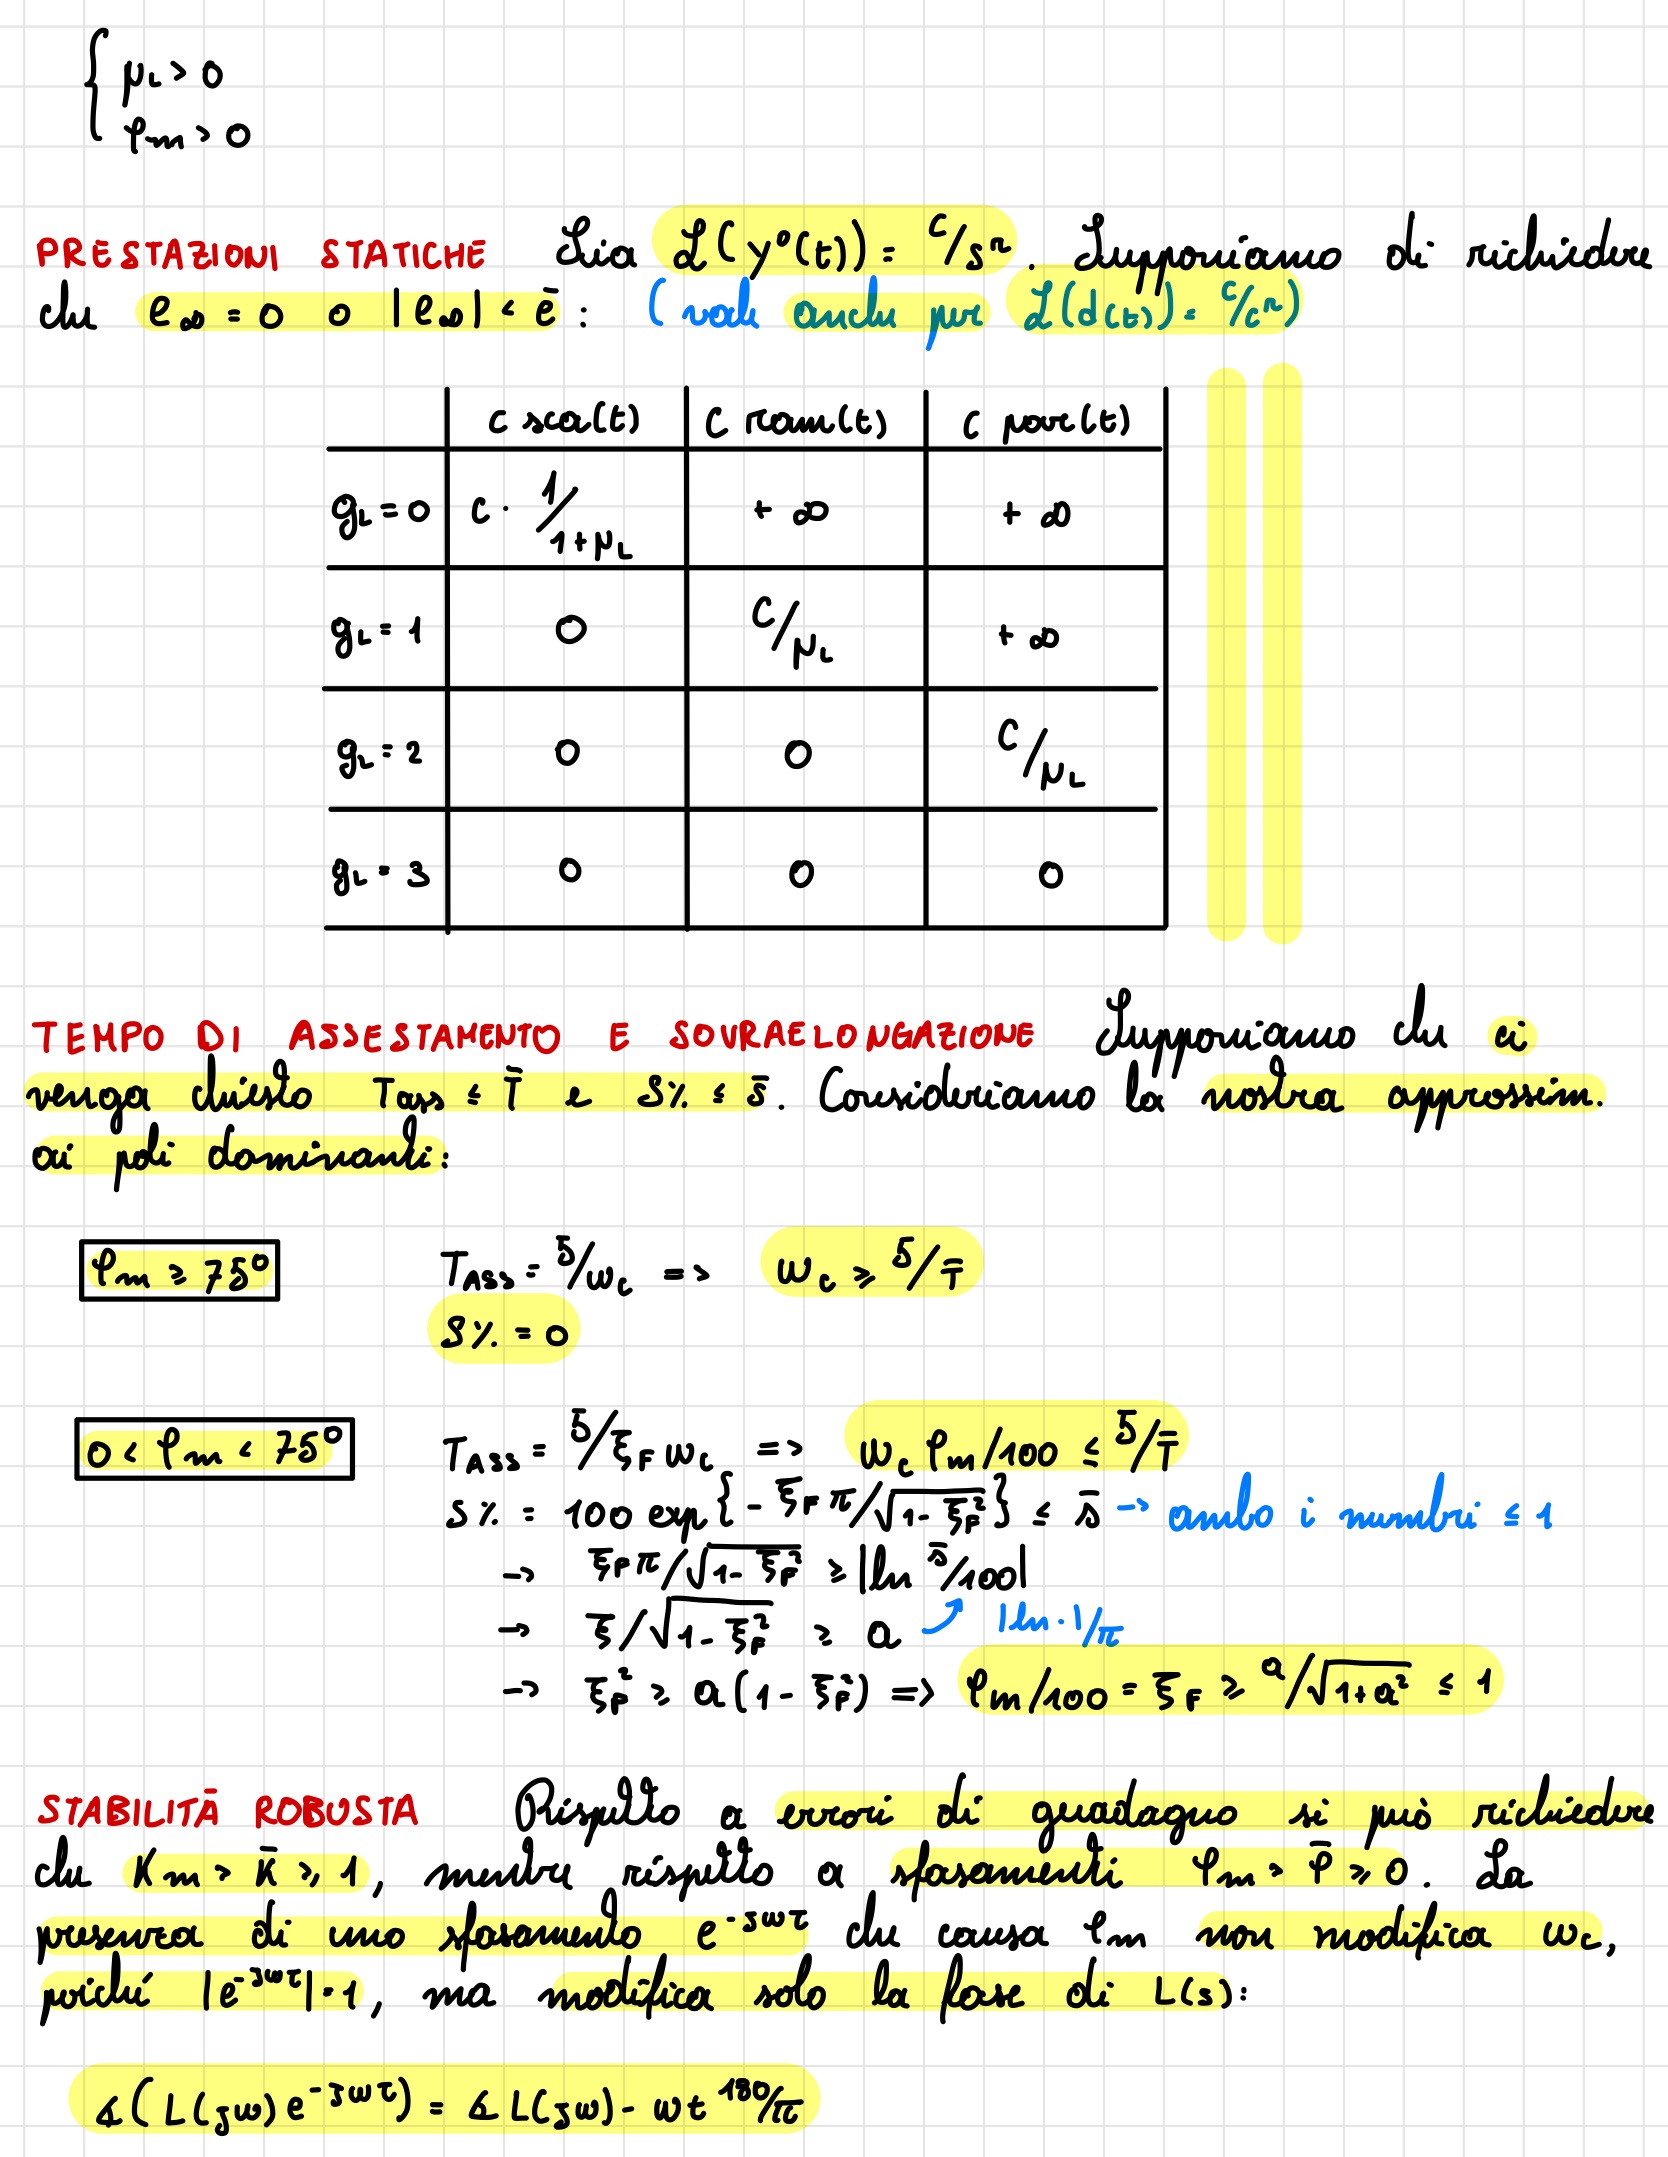 { μL > 0
φm > 0
PRESTAZIONI STATICHE Sia ℒ(y°(t)) = c/sⁿ. Supponiamo di richiedere
che e∞ = 0 o |e∞| < ē : (vale anche per ℒ(d(t)) = c/cⁿ)
c sca(t) c ram(t) c par(t)
gL = 0 c · 1/1+μL +∞ +∞
gL = 1 0 c/μL +∞
gL = 2 0 0 c/μL
gL = 3 0 0 0
TEMPO DI ASSESTAMENTO E SOVRAELONGAZIONE Supponiamo che ci
venga chiesto Tass ≤ T̄ e S% ≤ s̄. Consideriamo la nostra approssim.
ai poli dominanti:
φm ≥ 75° TASS = 5/ωc => ωc ≥ 5/T̄
S% = 0
0 < φm < 75° TASS = 5/ξF ωc => ωc φm/100 ≤ 5/T̄
S% = 100 exp{ - ξF π/√(1-ξF²) } ≤ s̄ → ambo i numbri ≤ 1
→ ξF π/√(1-ξF²) ≥ |ln s̄/100|
→ ξ/√(1-ξF²) ≥ a |ln·|/π
→ ξF² ≥ a(1-ξF²) => φm/100 = ξF ≥ a/√(1+a²) ≤ 1
STABILITÀ ROBUSTA Rispetto a errori di guadagno si può richiedere
che Km > K̄ ≥ 1, mentre rispetto a sfasamenti φm > φ̄ ≥ 0. La
presenza di uno sfasamento e^-jωτ che causa φm non modifica ωc,
poiché |e^-jωτ| = 1, ma modifica solo la fase di L(s):
∡(L(jω)e^-jωτ) = ∡L(jω) - ωt 180/π